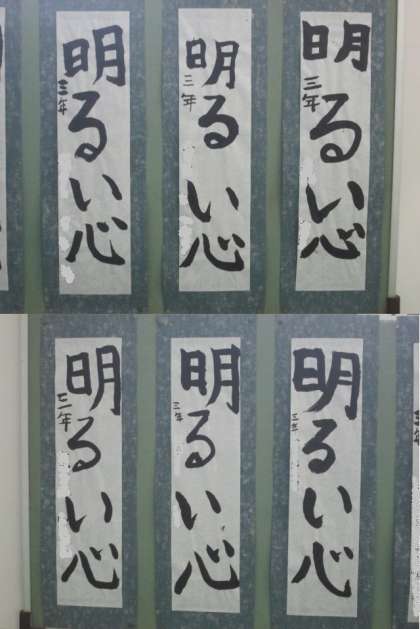 明るい心
三年
明るい心
三年
明るい心
三年
明るい心
三年
明るい心
三年
明るい心
三年